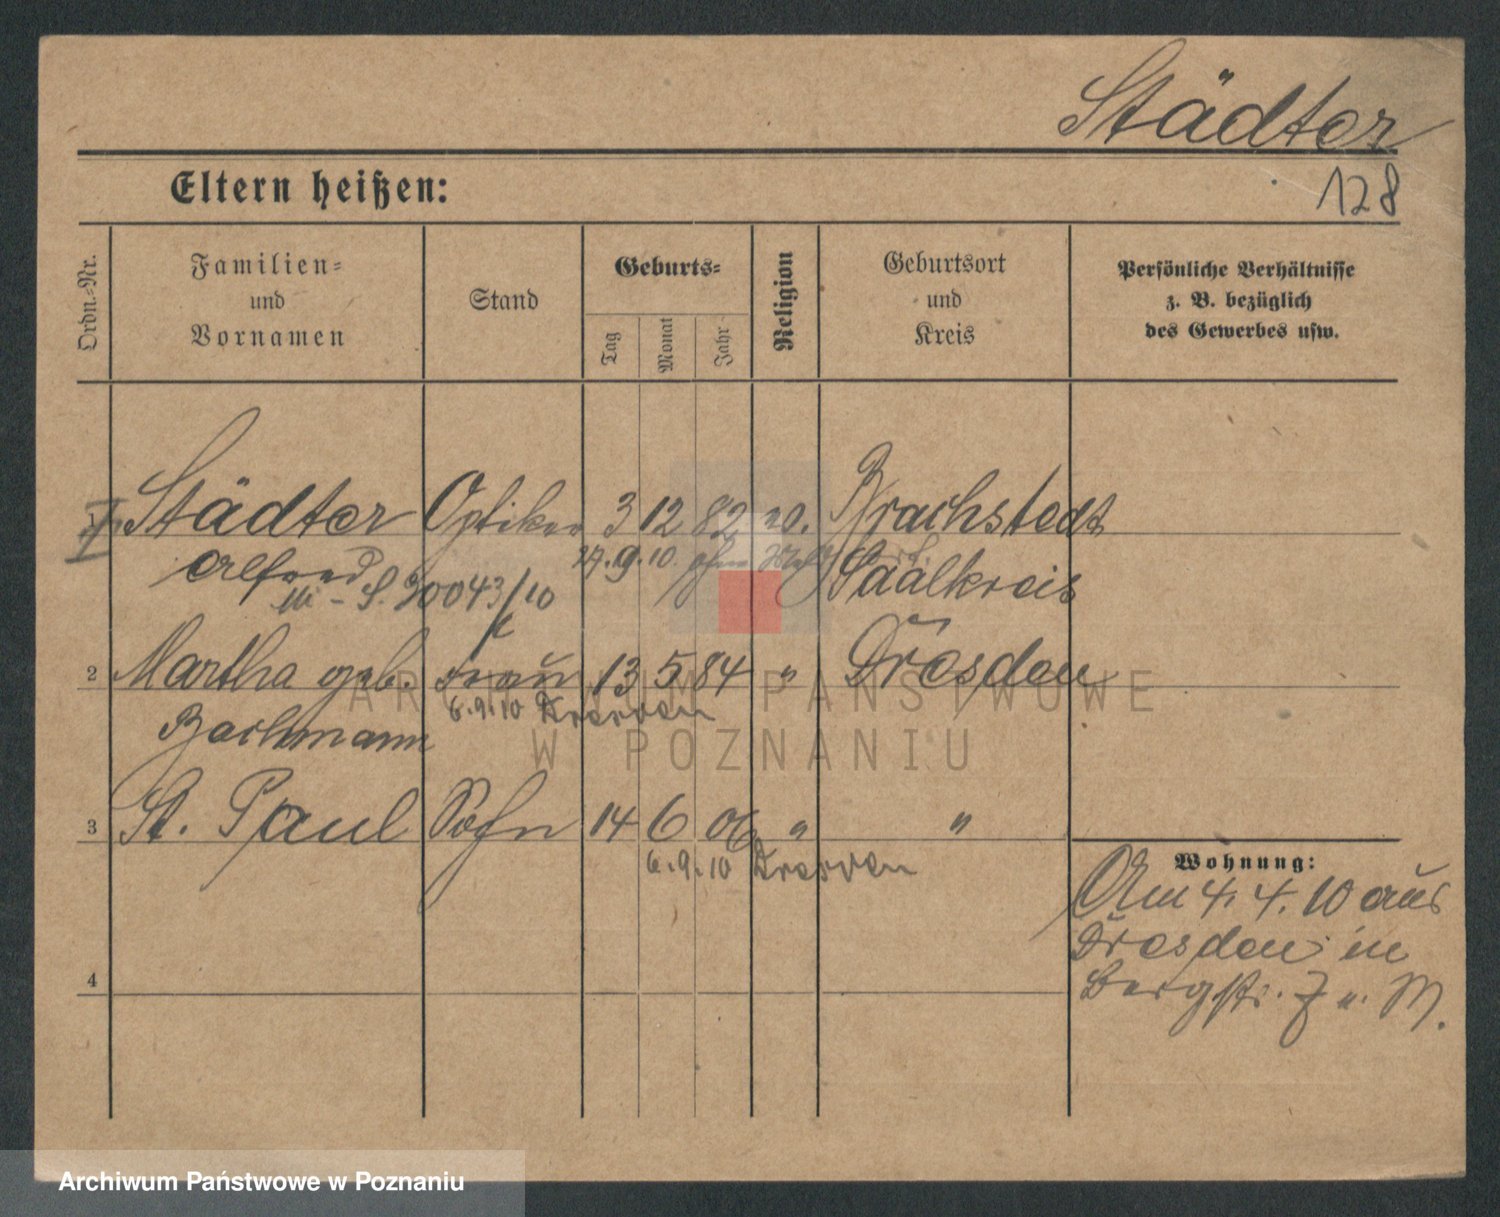 Städter
128
Eltern heißen:
Ordn.-Nr.
Familien-
und
Vornamen
Stand
Geburts-
Tag
Monat
Jahr
Religion
Geburtsort
und
Kreis
Persönliche Verhältnisse
z. B. bezüglich
des Gewerbes usw.
Städter Optiker 3 12 82 Brachstedt
Alfred 27.9.10. ohne Saalkreis
20043/10
2 Martha geb. Frau 13 5 84 " Dresden
6.9.10 Dresden
Bachmann
3 St. Paul Sohn 14 6 06 " "
6.9.10 Dresden
4
Wohnung:
Am 4. 4. 10 aus
Dresden in
Bergstr. 7 u. M.
ARCHIWUM PAŃSTWOWE
W POZNANIU
Archiwum Państwowe w Poznaniu